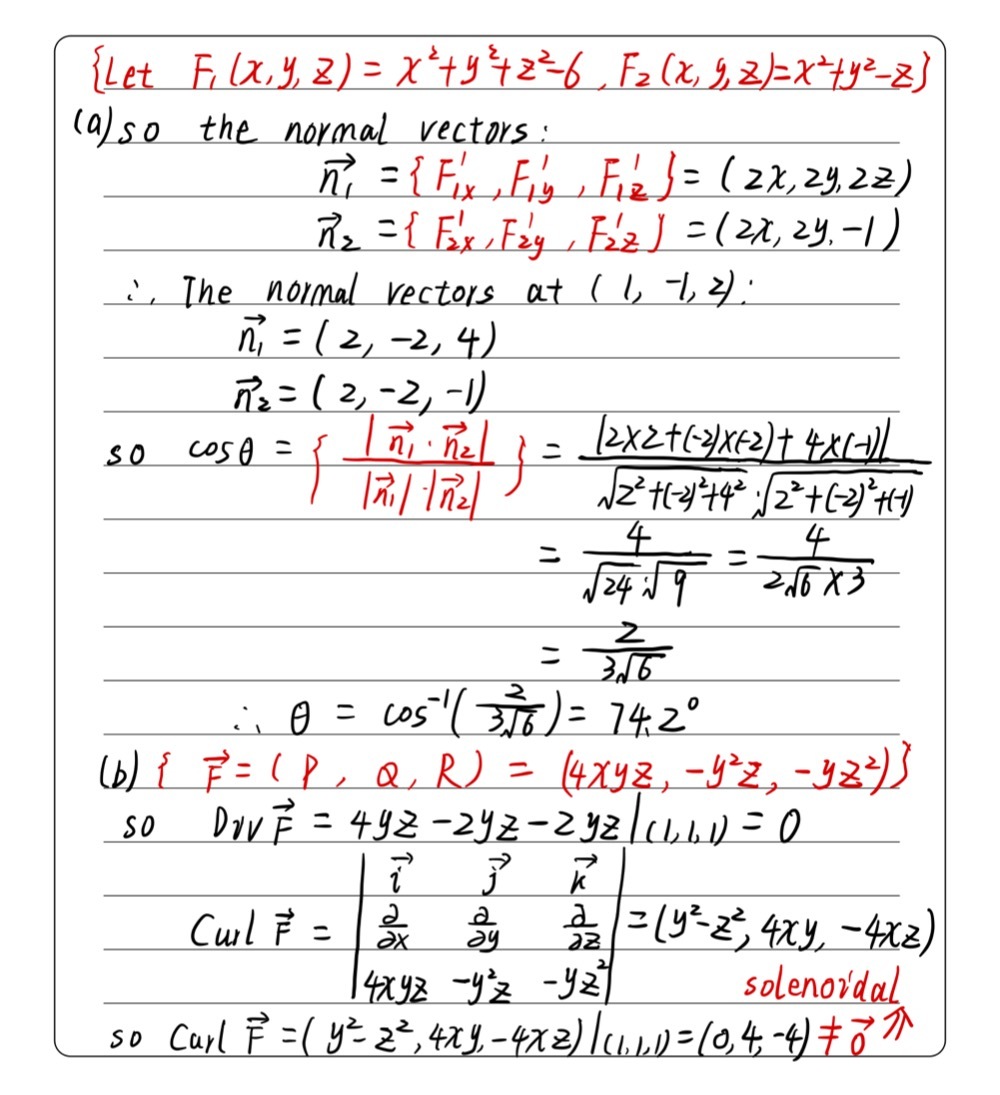 {Let F₁(x,y,z) = x²+y²+z²-6, F₂(x,y,z)=x²+y²-z}
(a) so the normal vectors:
n₁⃗ = {F₁'x, F₁'y, F₁'z} = (2x, 2y, 2z)
n₂⃗ = {F₂'x, F₂'y, F₂'z} = (2x, 2y, -1)
∴ The normal vectors at (1, -1, 2):
n₁⃗ = (2, -2, 4)
n₂⃗ = (2, -2, -1)
so cosθ = { |n₁⃗ · n₂⃗| / |n₁⃗|·|n₂⃗| } = |2×2+(-2)×(-2)+4×(-1)| / √(2²+(-2)²+4²) · √(2²+(-2)²+(-1))
= 4 / √24 · √9 = 4 / 2√6 × 3
= 2 / 3√6
∴ θ = cos⁻¹(2 / 3√6) = 74.2°
(b) { F⃗ = (P, Q, R) = (4xyz, -y²z, -yz²)}
so Div F⃗ = 4yz - 2yz - 2yz |(1,1,1) = 0
i⃗ j⃗ k⃗
Curl F⃗ = | ∂/∂x ∂/∂y ∂/∂z | = (y²-z², 4xy, -4xz)
4xyz -y²z -yz²
solenoidal
so Curl F⃗ = (y²-z², 4xy, -4xz) |(1,1,1) = (0, 4, -4) ≠ 0⃗ ⇑